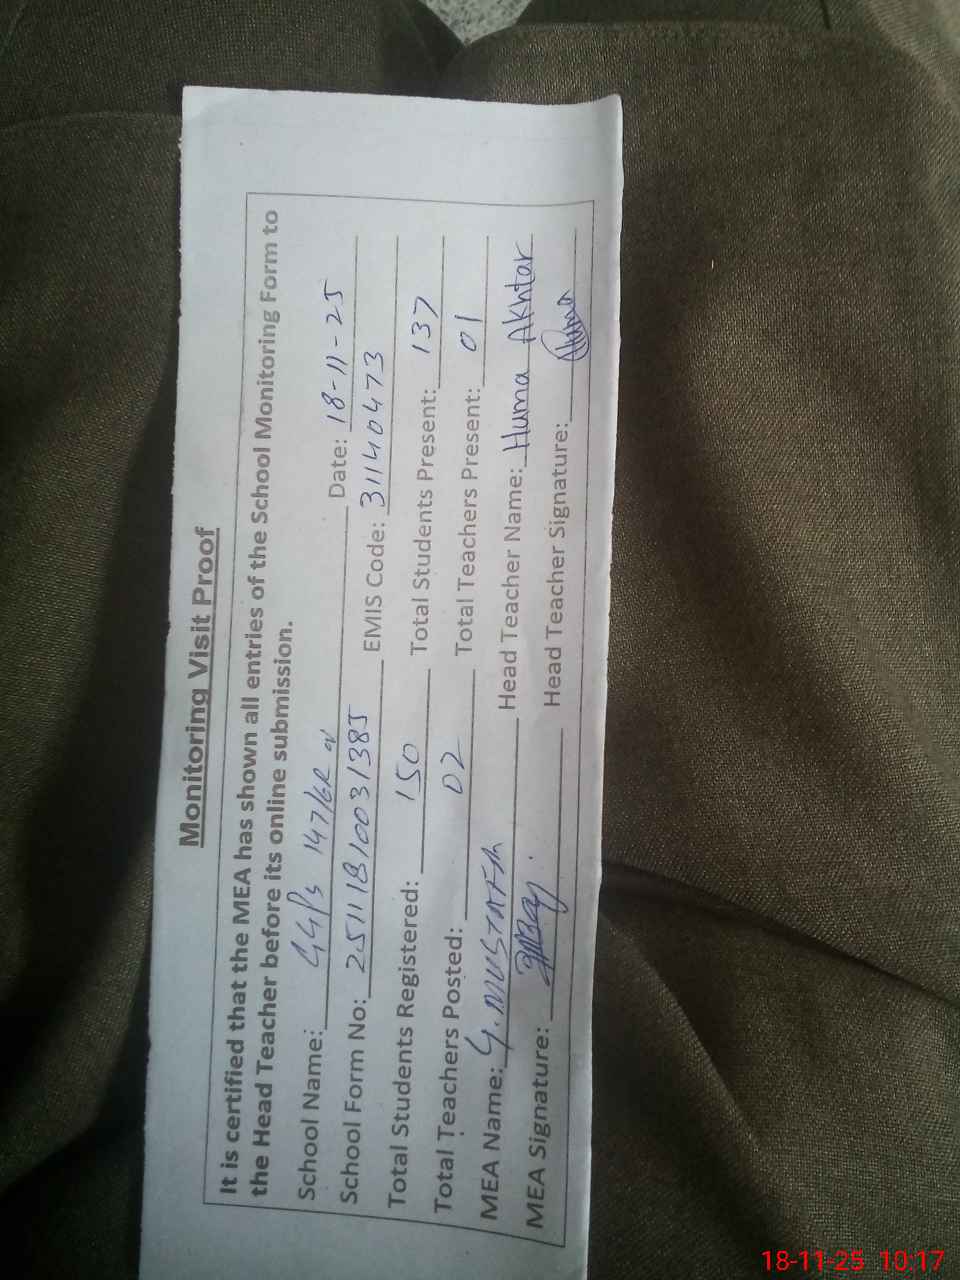 Monitoring Visit Proof
It is certified that the MEA has shown all entries of the School Monitoring Form to
the Head Teacher before its online submission.
School Name: GGPS 147/6R Date: 18-11-25
School Form No: 25111810031385 EMIS Code: 31140473
Total Students Registered: 150 Total Students Present: 137
Total Teachers Posted: 02 Total Teachers Present: 01
MEA Name: G. MUSTAFA Head Teacher Name: Huma Akhtar
MEA Signature: Head Teacher Signature: Huma
18-11-25 10:17